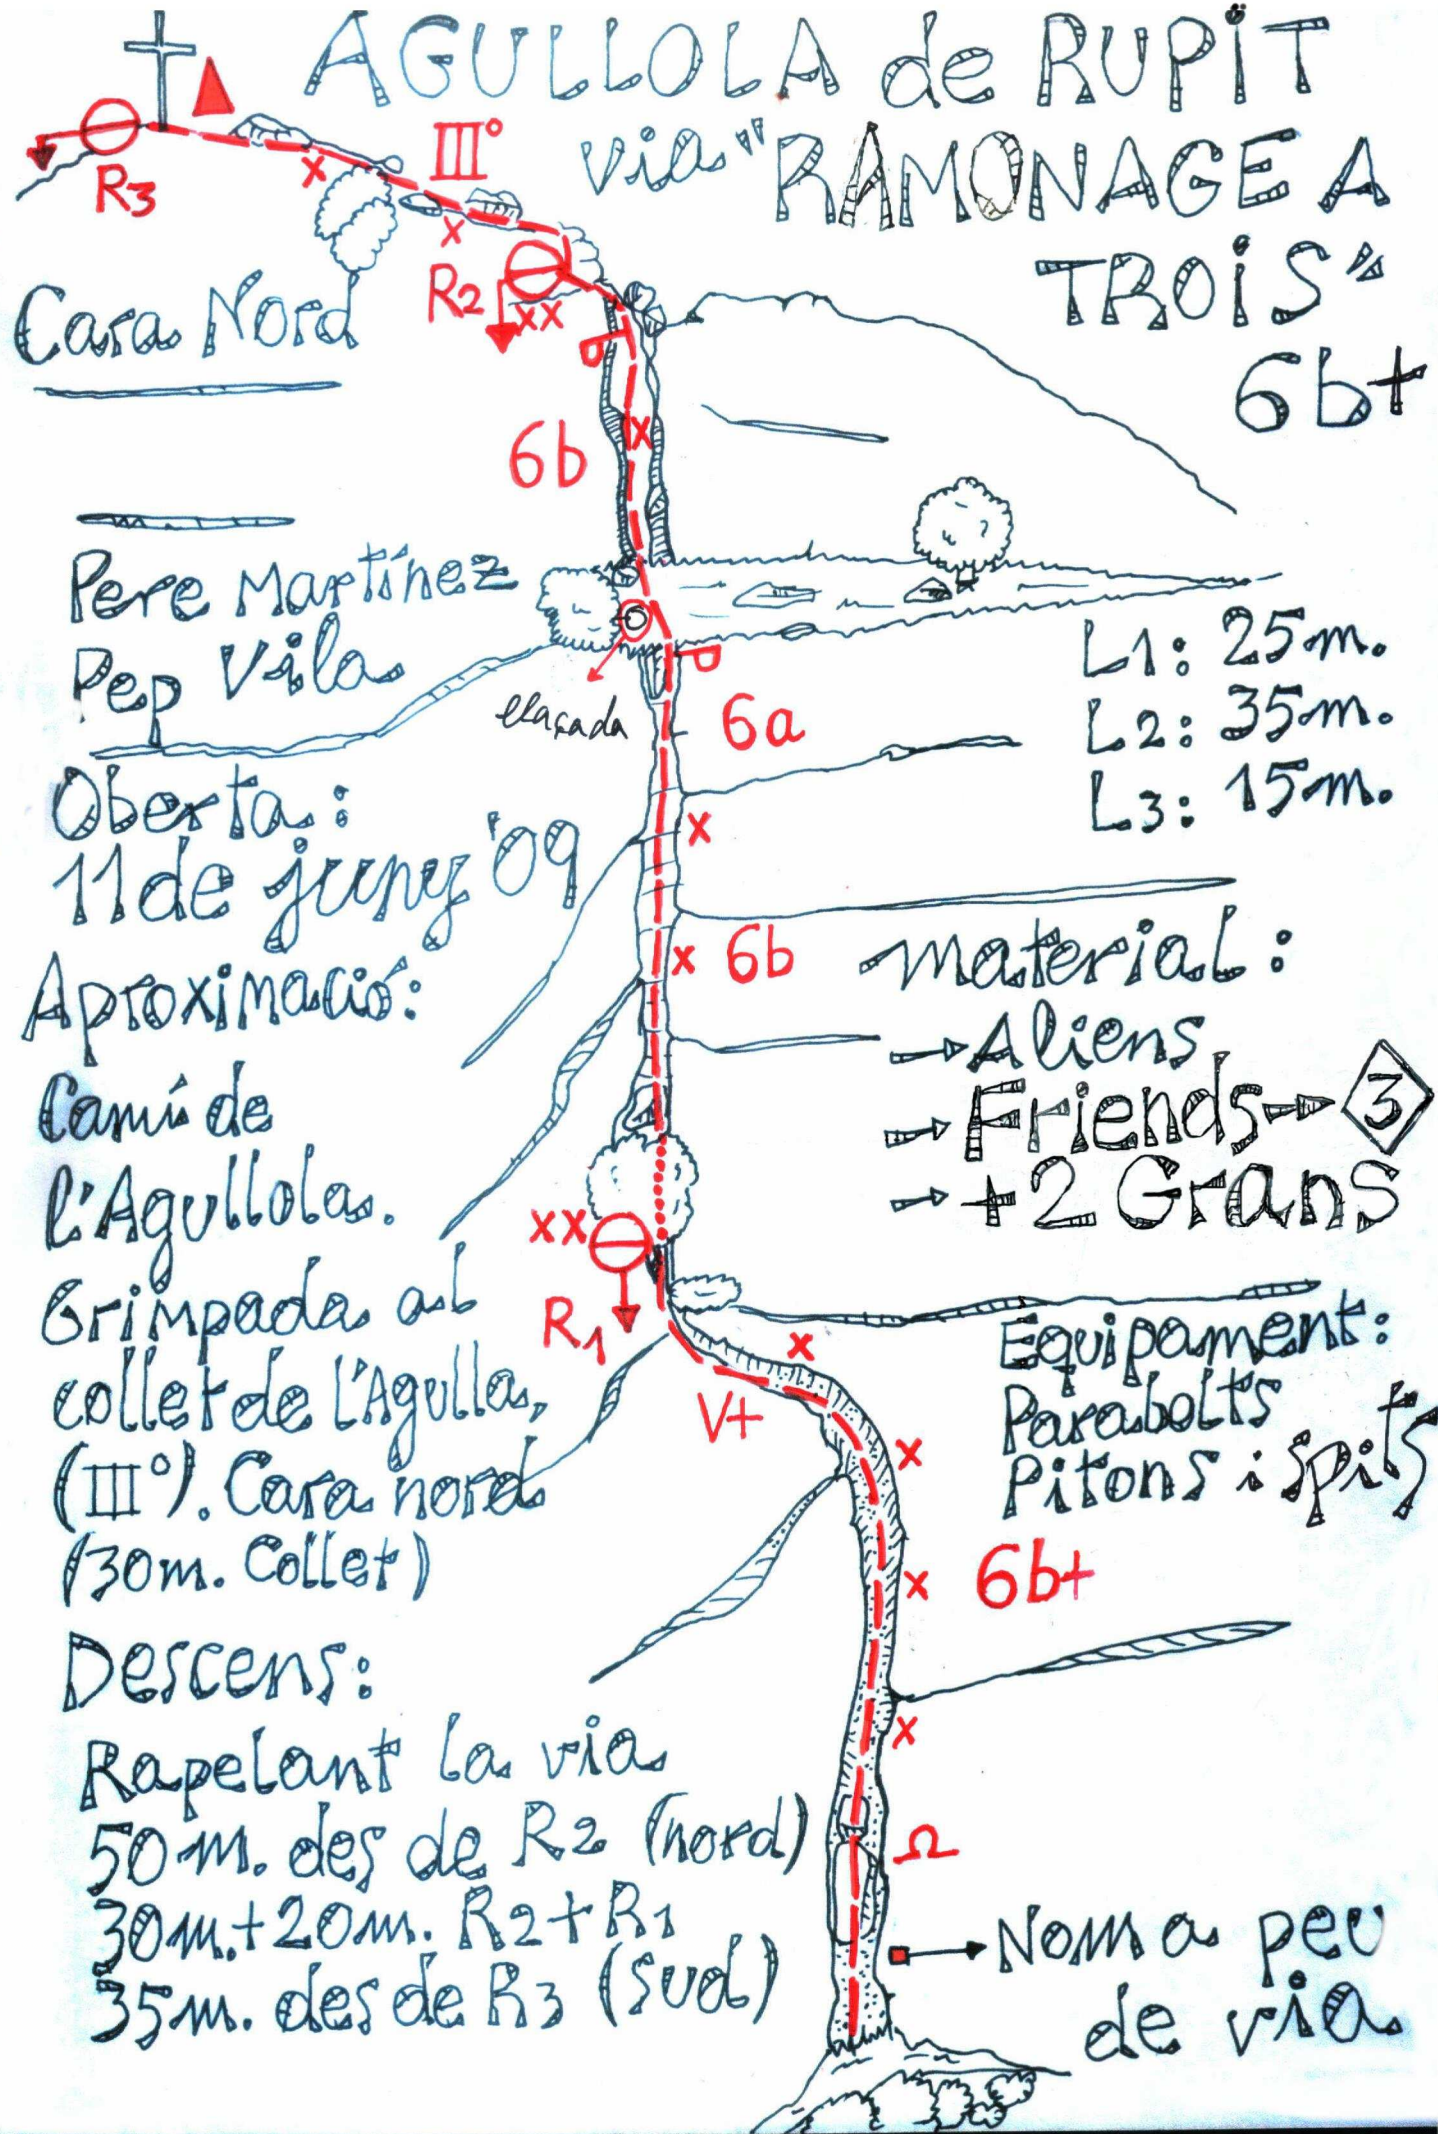 AGULLOLA de RUPIT
via "RAMONAGE A
TROIS"
6b+
R3
III°
R2
xx
Cara Nord
6b
Pere Martínez
Pep Vila
llaçada
6a
L1: 25m.
L2: 35m.
L3: 15m.
Oberta:
11 de juny '09
6b
material:
Aliens
Friends 3
+2 Grans
Aproximació:
Camí de
l'Agullola.
Grimpada al
collet de l'Agulla,
(III°). Cara nord
(30m. Collet)
xx
R1
V+
Equipament:
Parabolts
Pitons i spits
6b+
Descens:
Rapelant la via
50m. des de R2 (nord)
30m.+20m. R2+R1
35m. des de R3 (sud)
Ω
Nom a peu
de via